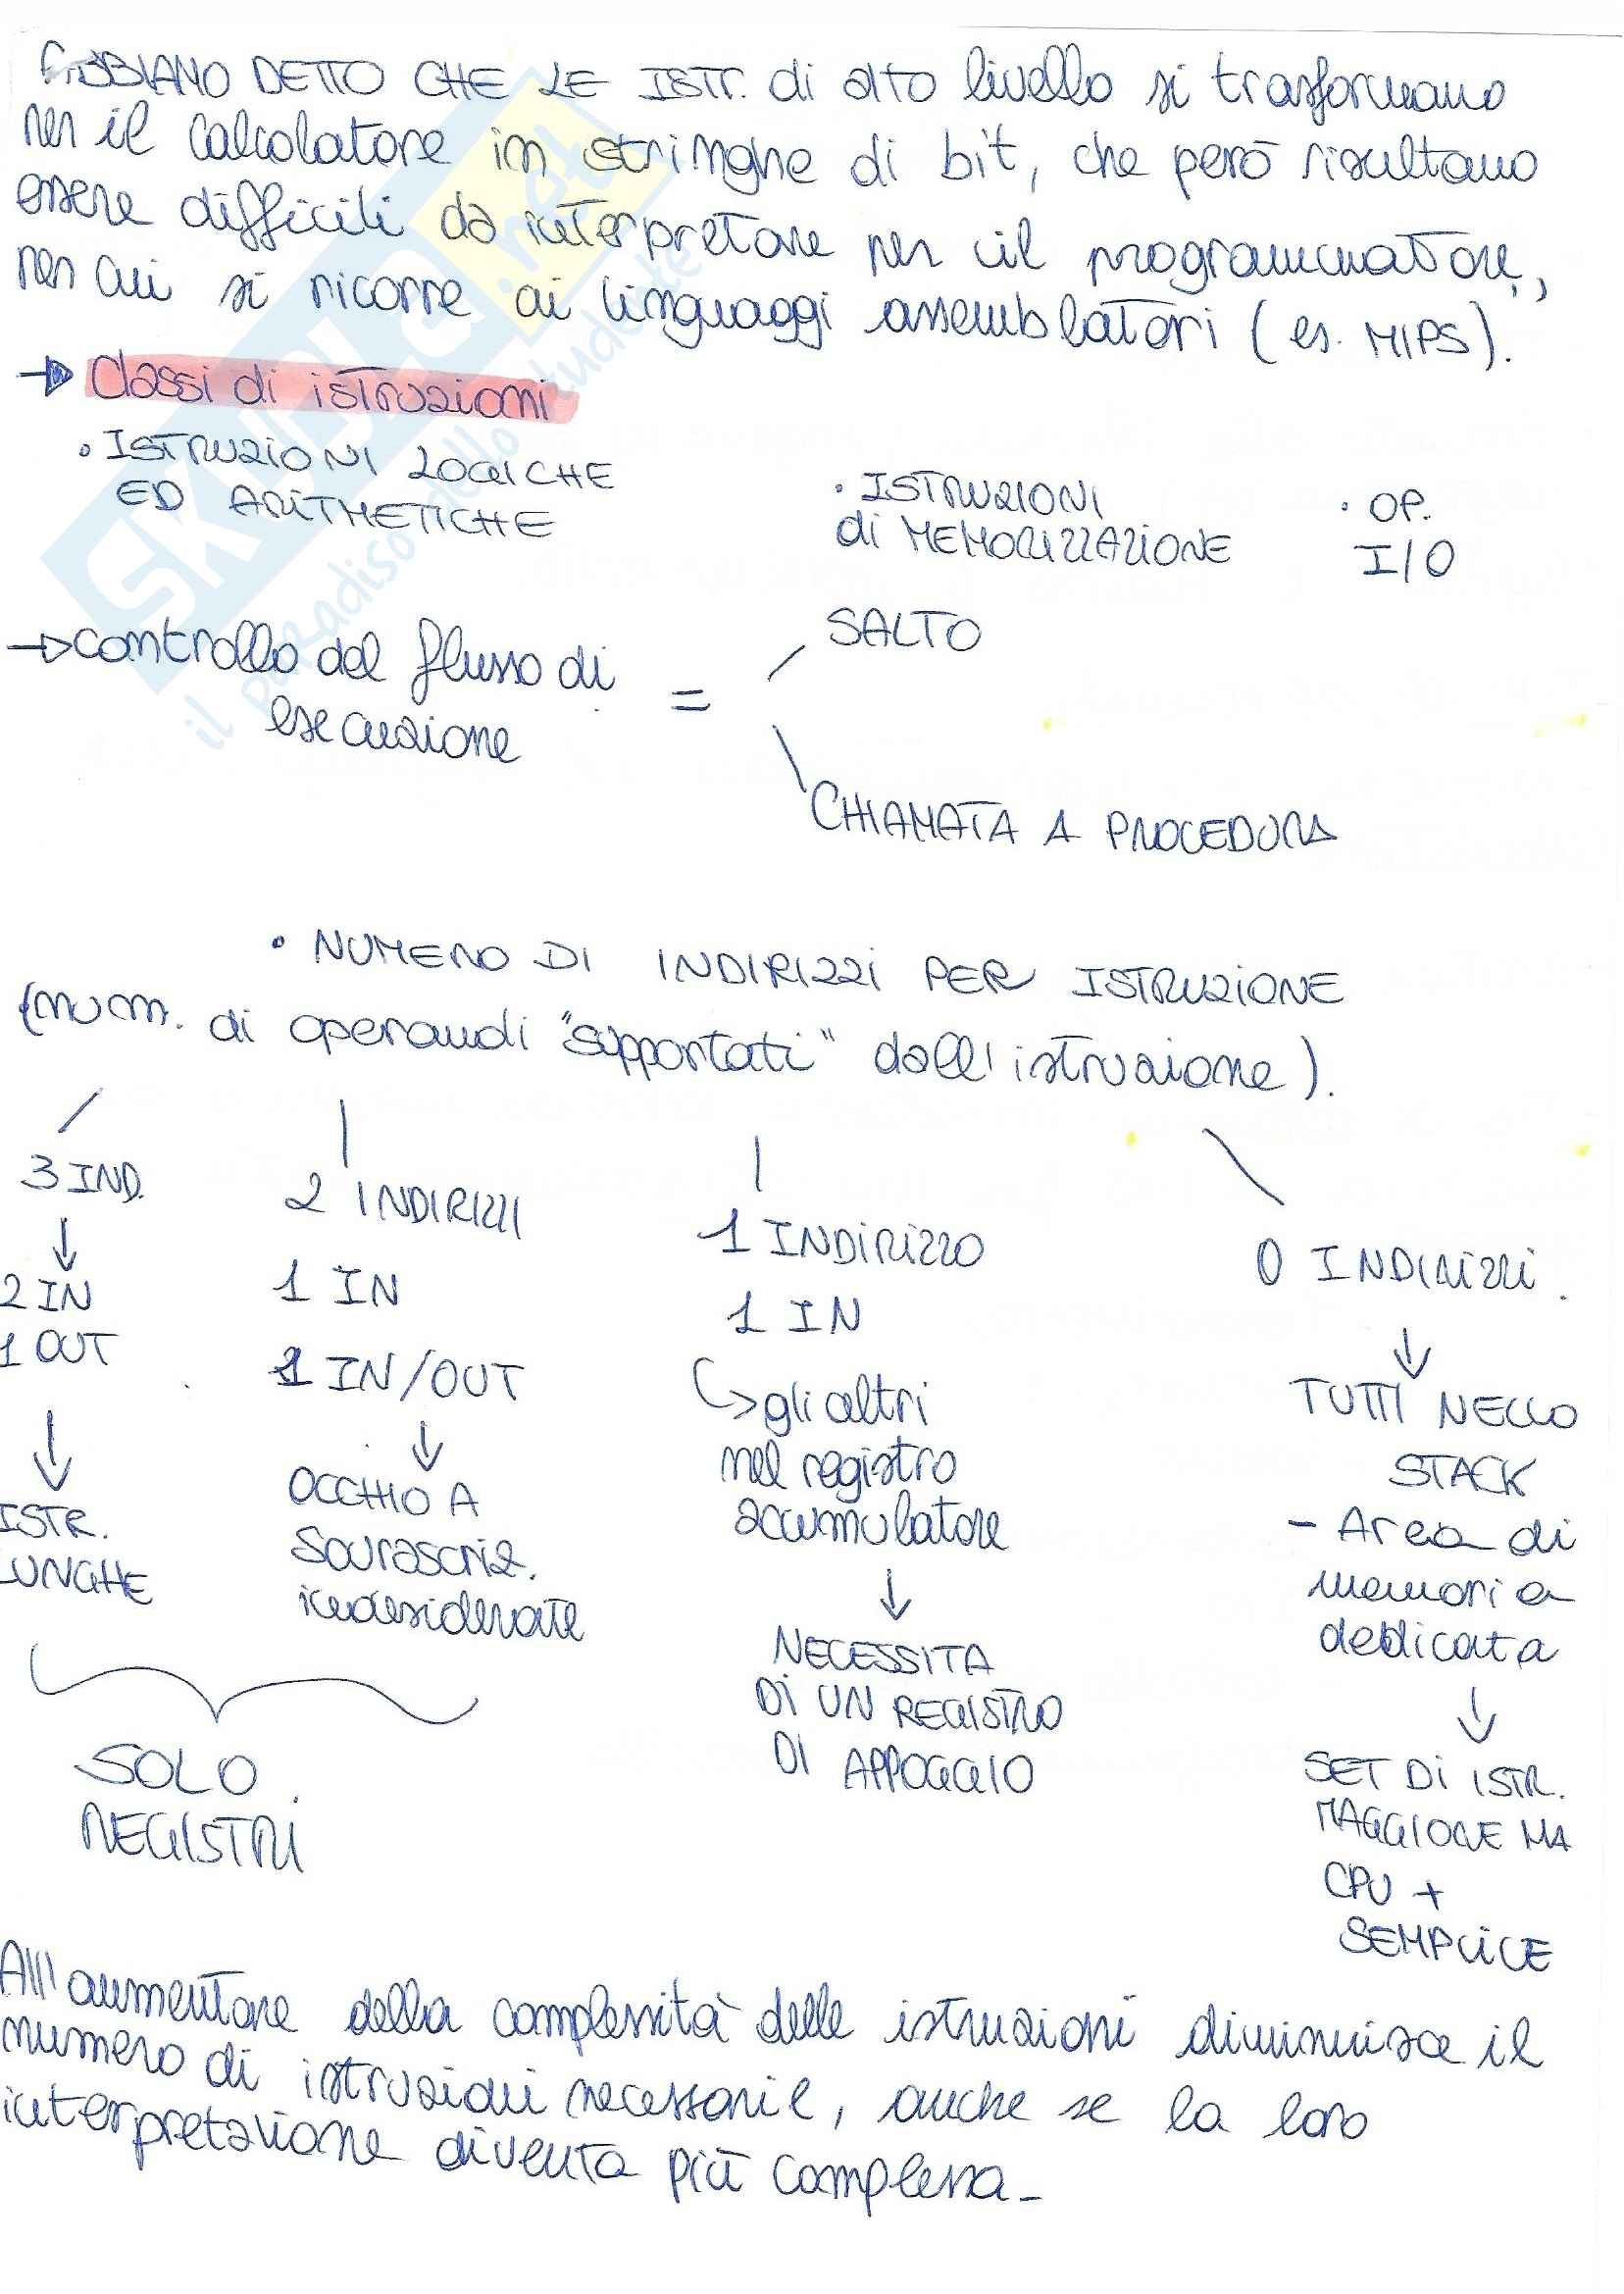 ABBIAMO DETTO CHE LE ISTR. di alto livello si trasformano
per il calcolatore in stringhe di bit, che però risultano
essere difficili da interpretare per il programmatore,
per cui si ricorre ai linguaggi assemblatori (es. MIPS).
→ Classi di istruzioni
• ISTRUZIONI LOGICHE
ED ARITMETICHE
• ISTRUZIONI
di MEMORIZZAZIONE
• OP.
I/O
→ controllo del flusso di
esecuzione
=
SALTO
CHIAMATA A PROCEDURA
• NUMERO DI INDIRIZZI PER ISTRUZIONE
(num. di operandi "supportati" dall'istruzione).
3 IND.
↓
2 IN
1 OUT
↓
ISTR.
LUNGHE
2 INDIRIZZI
1 IN
1 IN/OUT
↓
OCCHIO A
Sovrascriz.
indesiderate
SOLO
REGISTRI
1 INDIRIZZO
1 IN
↳ gli altri
nel registro
accumulatore
↓
NECESSITA
DI UN REGISTRO
DI APPOGGIO
0 INDIRIZZI.
↓
TUTTI NELLO
STACK
- Area di
memoria
dedicata
↓
SET DI ISTR.
MAGGIORE MA
CPU +
SEMPLICE
All'aumentare della complessità delle istruzioni diminuisce il
numero di istruzioni necessarie, anche se la loro
interpretazione diventa più complessa-
SKUOLA.net
il paradiso dello studente